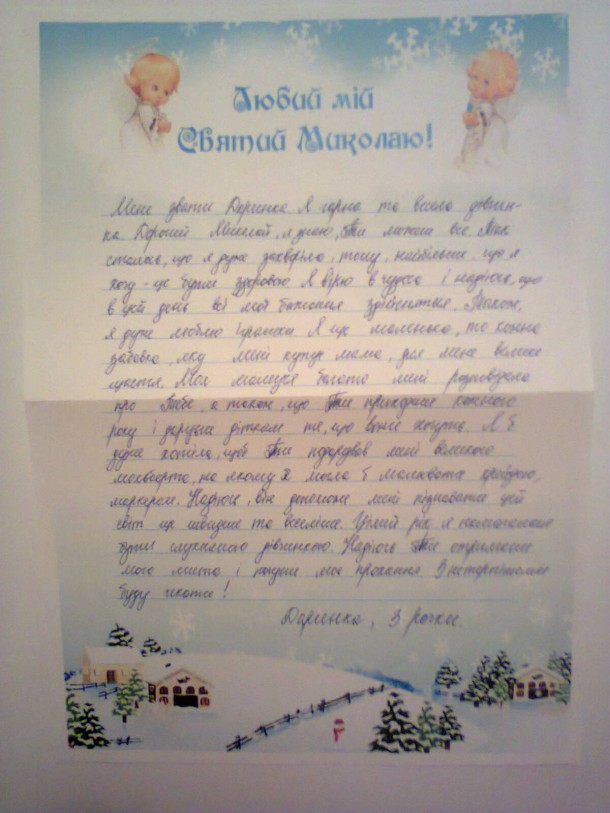 Любий мій
Святий Миколаю!
Мене звати Даринка. Я гарна та весела дівчин-
ка. Дорогий Миколай, я знаю, Ти можеш все. Так
сталось, що я дуже захворіла, тому, найбільше, що я
хочу - це бути здоровою. Я вірю в чудеса і надіюсь, що
в цей день всі мої бажання здійсняться. Також,
я дуже люблю іграшки. Я ще маленька, то кожна
забавка, яку мені купує мама, для мене велике
щастя. Моя матуся багато мені розповідала
про Тебе, а також, що Ти приходиш кожного
року і даруєш діткам те, що вони хочуть. Я б
дуже хотіла, щоб Ти подарував мені великого
мольберта, на якому я могла б малювати крейдою,
маркером. Надіюсь, він допоможе мені пізнавати цей
світ ще швидше та веселіше. Цілий рік я намагалася
бути слухняною дівчинкою. Надіюсь Ти отримаєш
мого листа і почуєш моє прохання. З нетерпінням
буду чекати!
Даринка, 3 рочки.